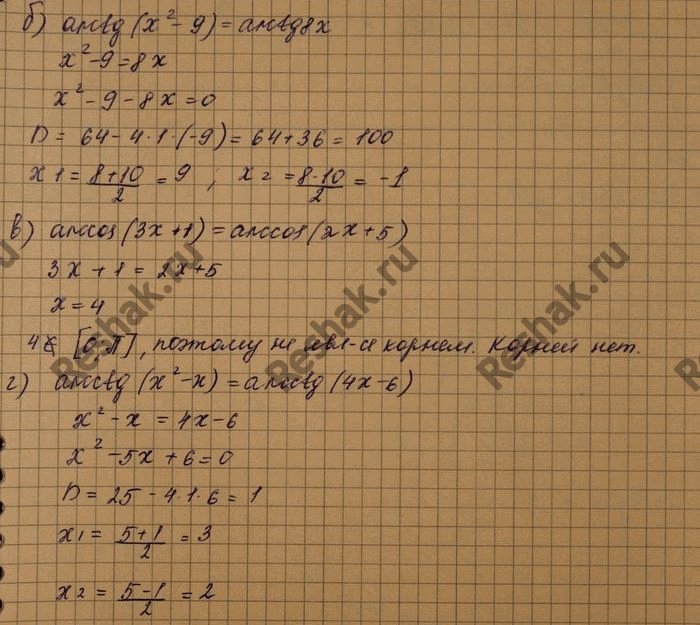 б) arcctg (x² - 9) = arcctg 8x
x² - 9 = 8x
x² - 9 - 8x = 0
D = 64 - 4·1·(-9) = 64 + 36 = 100
x1 = (8+10)/2 = 9 ; x2 = (8-10)/2 = -1
в) arccos (3x + 1) = arccos (2x + 5)
3x + 1 = 2x + 5
x = 4
4 ∉ [0; π], поэтому не явл-ся корнем. Корней нет.
г) arcctg (x² - x) = arcctg (4x - 6)
x² - x = 4x - 6
x² - 5x + 6 = 0
D = 25 - 4·1·6 = 1
x1 = (5+1)/2 = 3
x2 = (5-1)/2 = 2
Reshak.ru
Reshak.ru
Reshak.ru